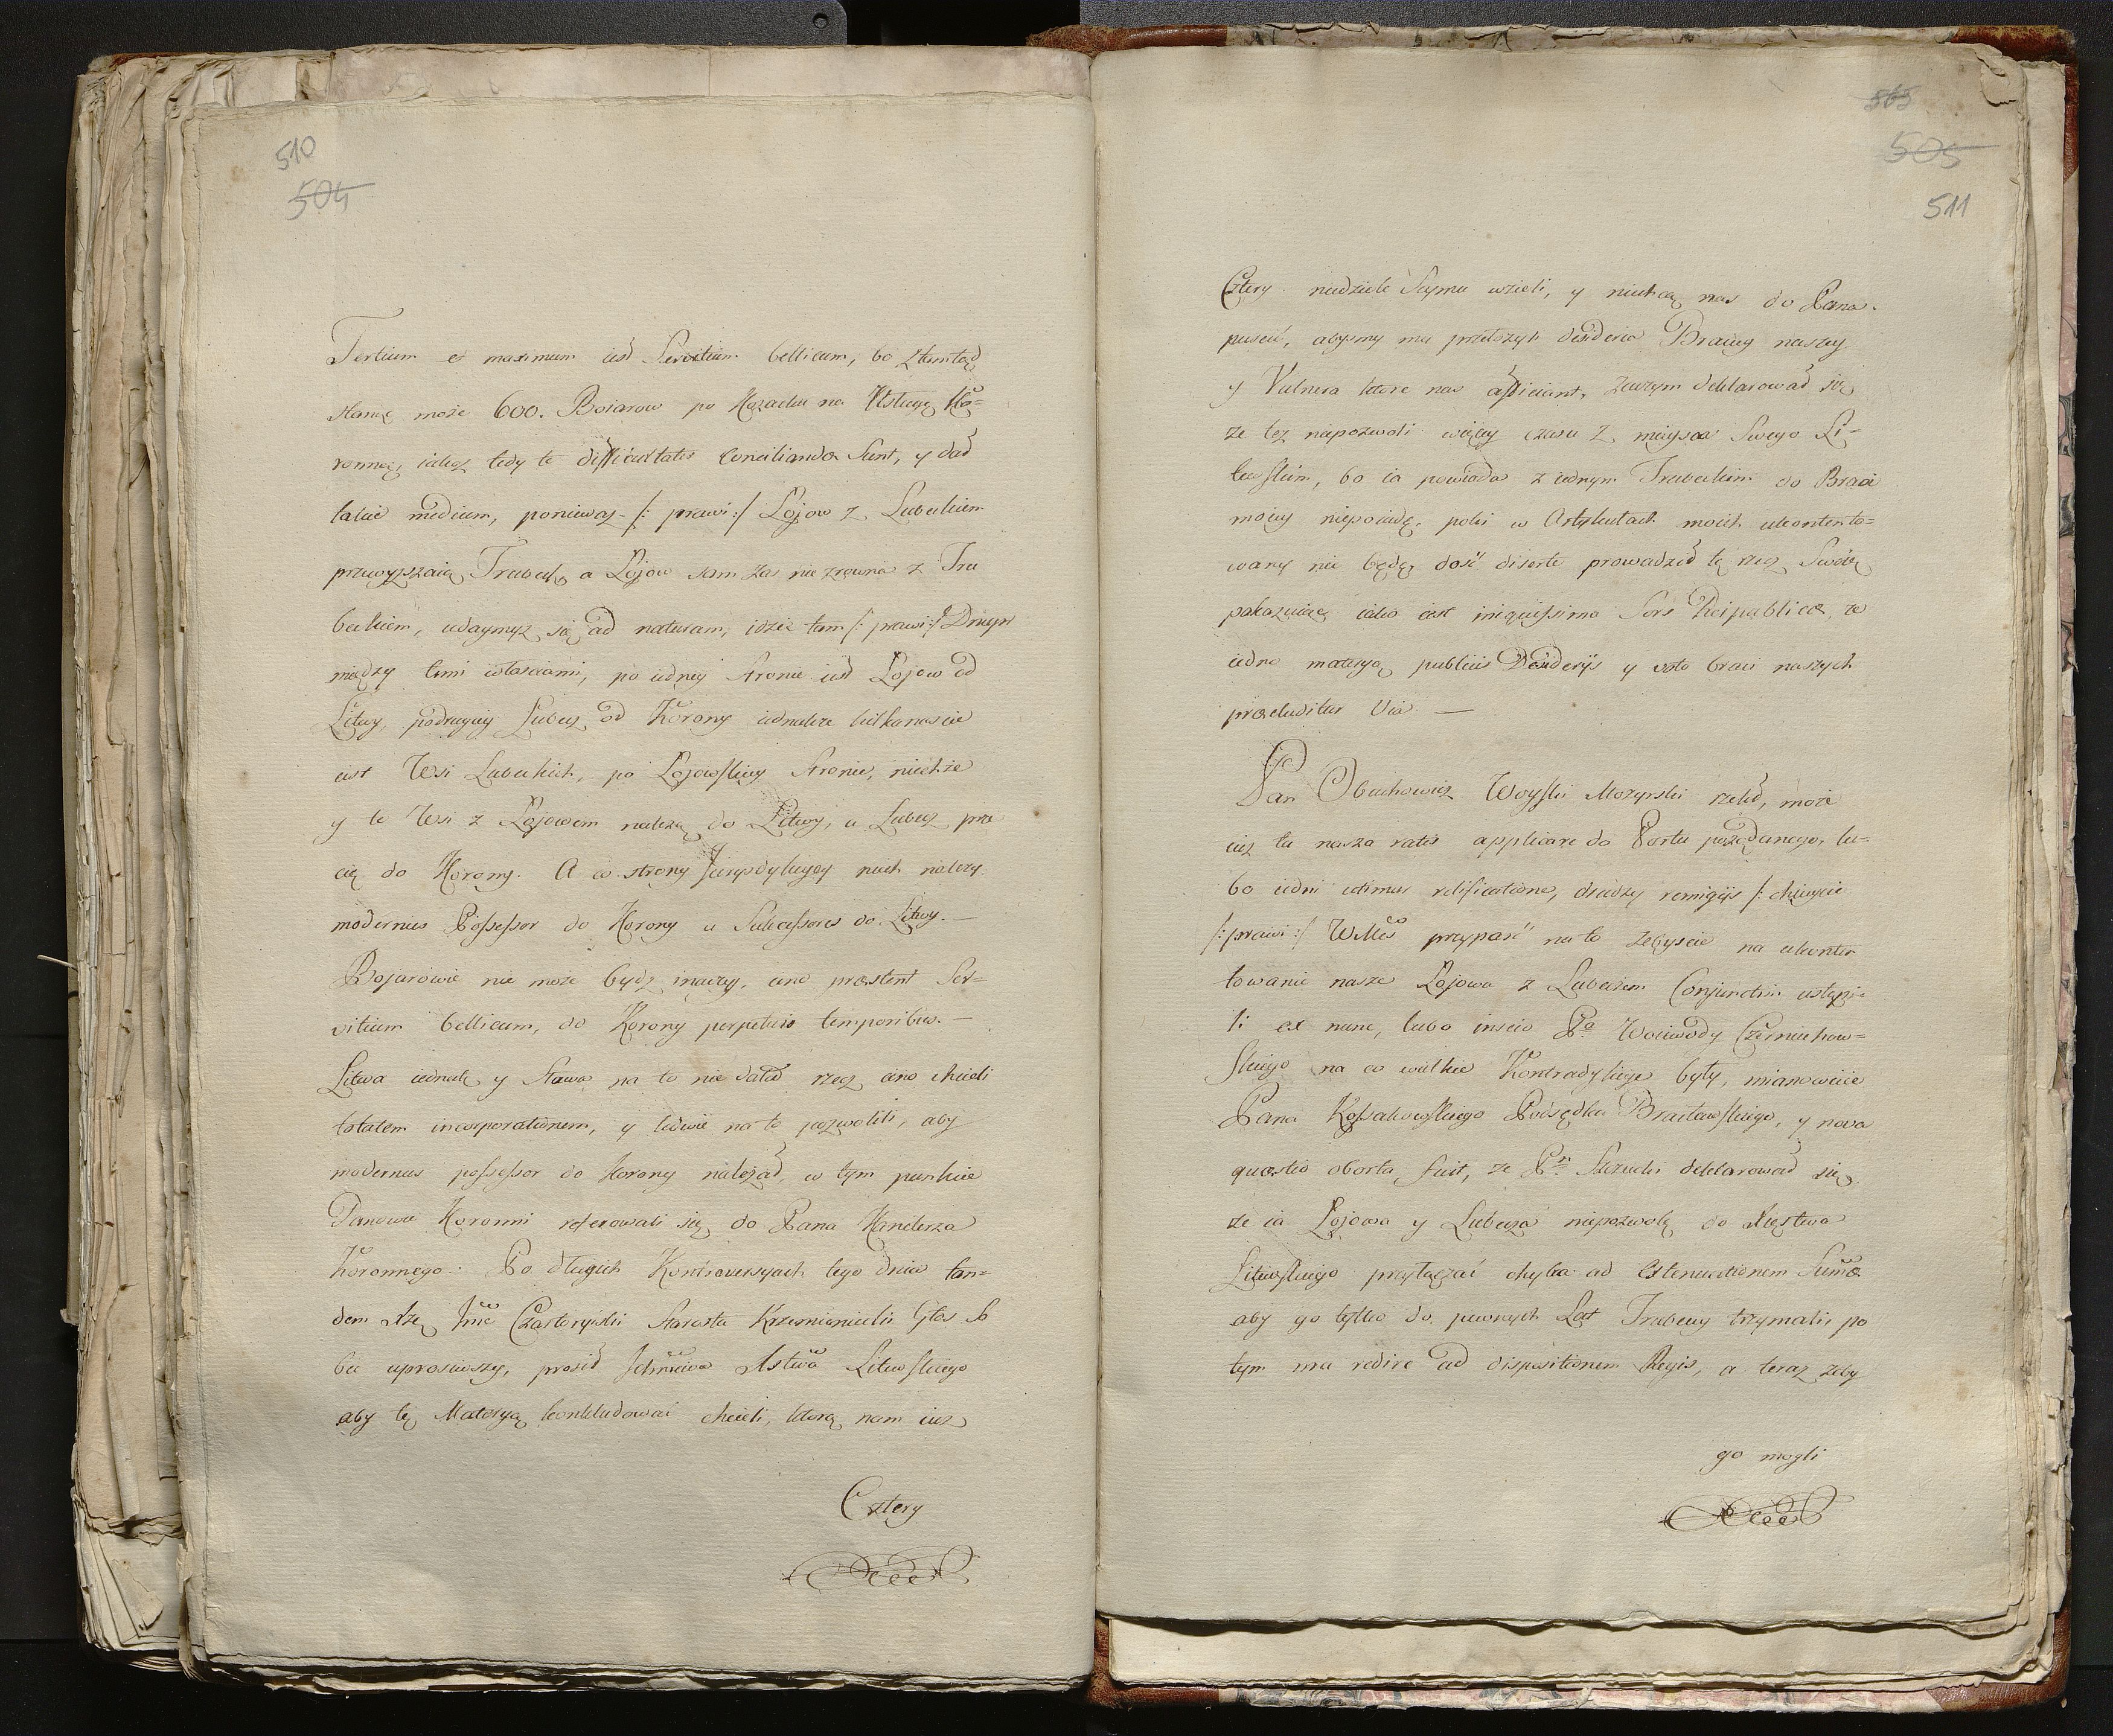 510
504
Tertium et maximum iest Servitium bellicum, bo ztamtąd
stanąc może 600. Boiarow po Kozacku na Usługę Ko=
ronną, iakoż tedy te difficultates conciliandæ Sunt, y dać
takie medium, ponieważ /: prawi :/ Łojow z Lubeckiem
przewyższaią Trubeck, a Łojow sam zas nie zrowna z Tru
beckiem, udaymyż się ad naturam, idzie tam /: prawi :/ Dniepr
między temi włosciami, po iedney stronie iest Łojow od
Litwy, podrugiey Lubecz od Korony iednakze kilkanascie
iest Wsi Lubeckich, po Łojowskiey stronie, niechze
y te Wsi z Łojowem należą do Litwy, a Lubecz prze
cię do Korony. A co strony Jurysdykcyey niech nalezy
modernus Possessor do Korony a Successores do Litwy. —
Bojarowie nie może bydz inaczey, eno præstent Ser=
vitium bellicum, do Korony perpetuis temporibus. —
Litwa iednak y słowa na to nie dała rzec, eno chcieli
totalem incorporationem, y ledwie na to pozwolili, aby
modernus possessor do Korony nalezał, w tym punkcie
Panowie Koronni referowali się do Pana Kanclerza
Koronnego. Po długich Kontrowersyach tego dnia tan=
dem Xże Jmć Czartoryiski Starosta Krzemieniecki Głos So
bie uprosiwszy, prosił Ichmciow Xstwa Litewskiego
aby tę Materyą konkludować chcieli, ktorą nam iuż
Cztery
565
505
511
Cztery niedziele Seymu wzieli, y niechcą nas do Pana
puscić, abysmy mu przełozyli desideria Braciey naszey
y Vulnera ktore nas afficiunt, zaczym deklarował się
ze tez niepozwoli więcey czasu z mieysca Swego Li=
tewskim, bo ia powiada z iednym Trubeckim do Braci
moiey niepoiadę, poki w Artykułach moich ukontento=
wany nie będę, dość diserte prowadził tę rzecz Swoię
pokazuiąc iako iest iniquissima Sors Reipublicæ, ze
iedną materyą publicis Desideriis y voto braci naszych
præcluditur Via. —
Pan Obuchowicz Woyski Mozyrski rzekł, może
iuż ta nasza ratis applicare do Portu pożądanego, lu=
bo iedni utimur velificatione, drudzy remigijs /: chcieycie
/: prawi :/ WMć przypaść na to zebyscie na ukonten
towanie nasze Łojowa z Lubeczem Conjunctim ustąpi=
li ex nunc, lubo inscio Pa Woiewody Czerniechow=
skiego na co wielkie Kontradykcye były, mianowicie
Pana Kossakowskiego Podsędka Bracławskiego, y nova
quæstio oborta fuit, ze Pn Słucki deklarował się
ze ia Łojowa y Lubecza niepozwolę do Xięstwa
Litewskiego przyłączać chyba ad extenuationem Summæ
aby go tylko do pewnych Lat Trubeccy trzymali, po
tym ma redire ad dispositionem Regis, a teraz zeby
go mogli